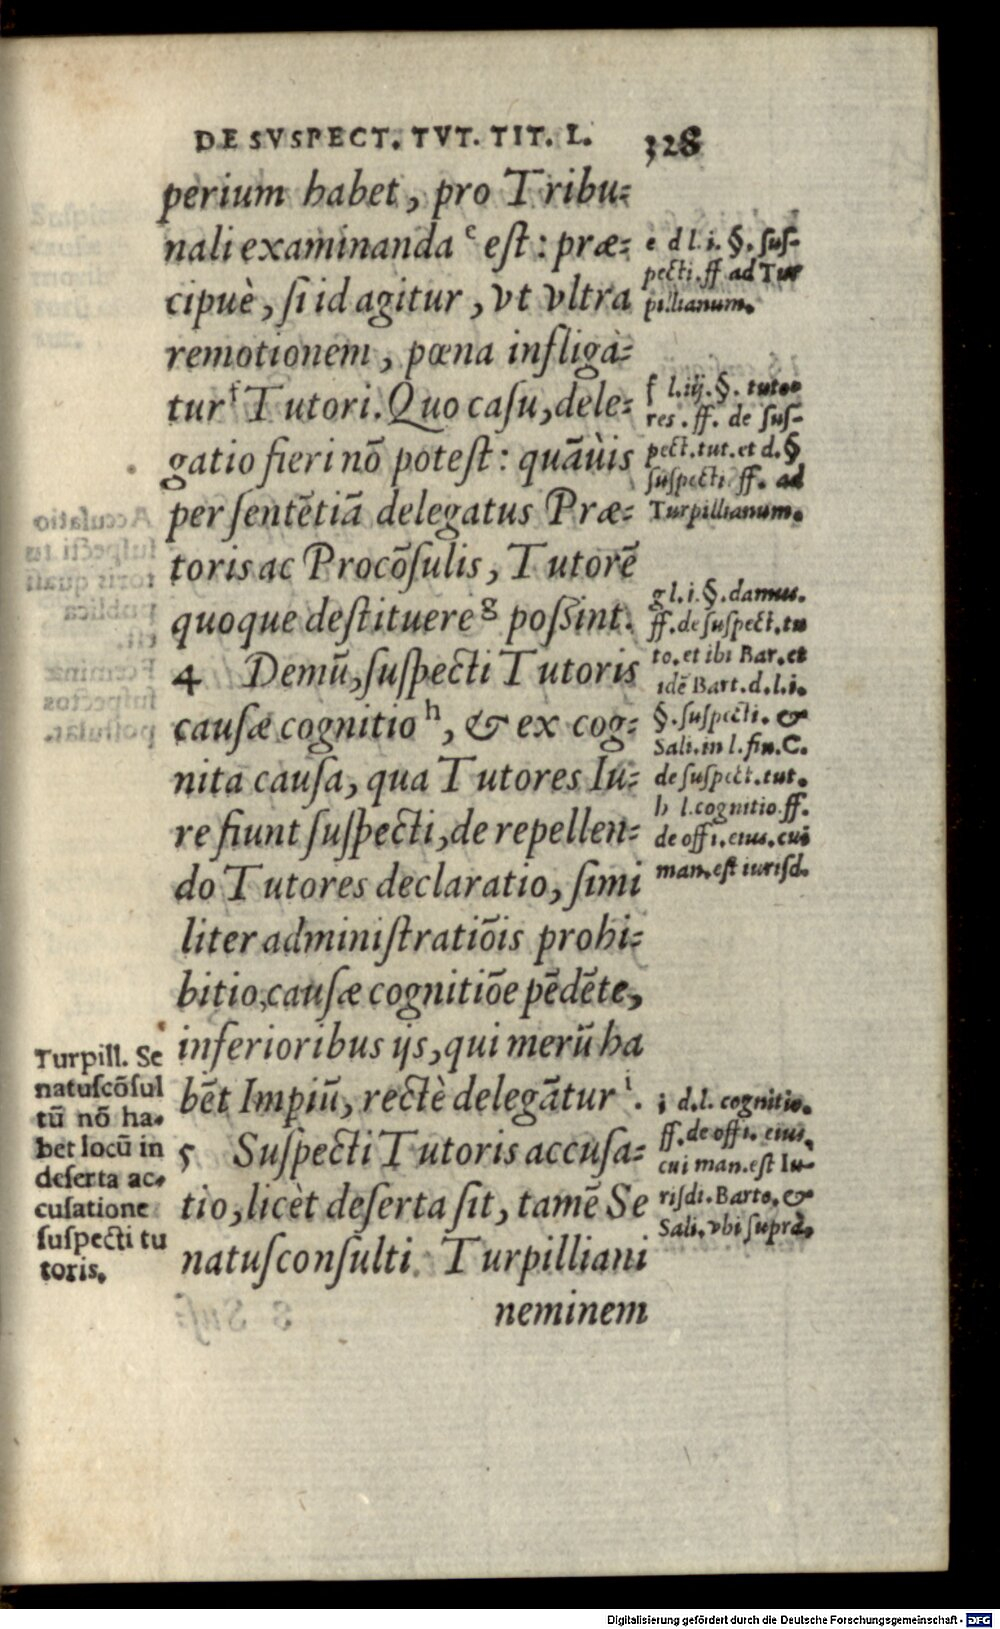 DE SVSPECT. TVT. TIT. L. 328
perium habet, pro Tribu-
nali examinanda ᵉ est: præ-
cipuè, si id agitur, vt vltra
remotionem, pœna infligà-
tur ᶠ Tutori. Quo casu, dele-
gatio fieri nō potest: quāuis
per sentētiā delegatus Præ-
toris ac Procōsulis, Tutorē
quoque destituere ᵍ possint.
4 Demū, suspecti Tutoris
causæ cognitio ʰ, & ex cog-
nita causa, qua Tutores Iu-
re fiunt suspecti, de repellen-
do Tutores declaratio, simi
liter administratiōis prohi-
bitio, causæ cognitiōe pēdēte,
inferioribus ijs, qui merū ha
bēt Impiū, rectè delegātur ⁱ.
5 Suspecti Tutoris accusa-
tio, licèt deserta sit, tamē Se
natusconsulti Turpilliani
neminem
e d l. i. §. sus-
pecti. ff ad Tur
pillianum.
f l. iij. §. tuto-
res. ff. de sus-
pect. tut. et d. §
suspecti ff. ad
Turpillianum.
g l. i. §. damus.
ff. de suspect. tu
to. et ibi Bar. et
idē Bart. d. l. i.
§. suspecti. &
Sali. in l. fin. C.
de suspect. tut.
h l. cognitio. ff.
de offi. eius. cui
man. est iurisd.
i d. l. cognitio.
ff. de offi. eius.
cui man. est Iu-
risdi. Barto. &
Sali. vbi suprà.
Turpill. Se
natuscōsul
tū nō ha-
bet locū in
deserta ac-
cusatione
suspecti tu
toris.
Digitalisierung gefördert durch die Deutsche Forschungsgemeinschaft - DFG